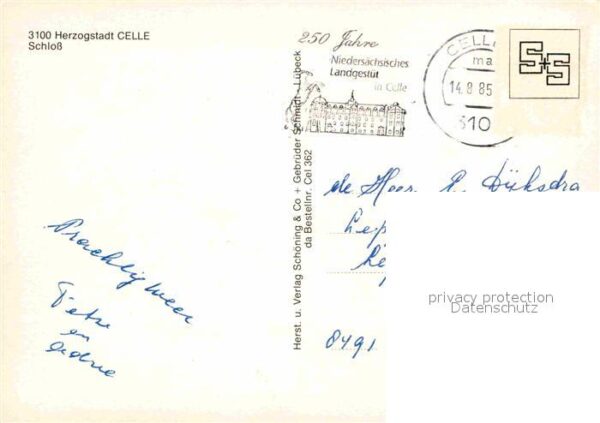 3100 Herzogstadt CELLE
Schloß
250 Jahre
Niedersächsisches
Landgestüt
in Celle
CELL
ma
14.8.85
310
S+S
Herst. u. Verlag Schöning & Co + Gebrüder Schmidt - Lübeck
da Bestellnr. Cel 362
de Heer
Prachtig weer
en
8491
privacy protection
Datenschutz